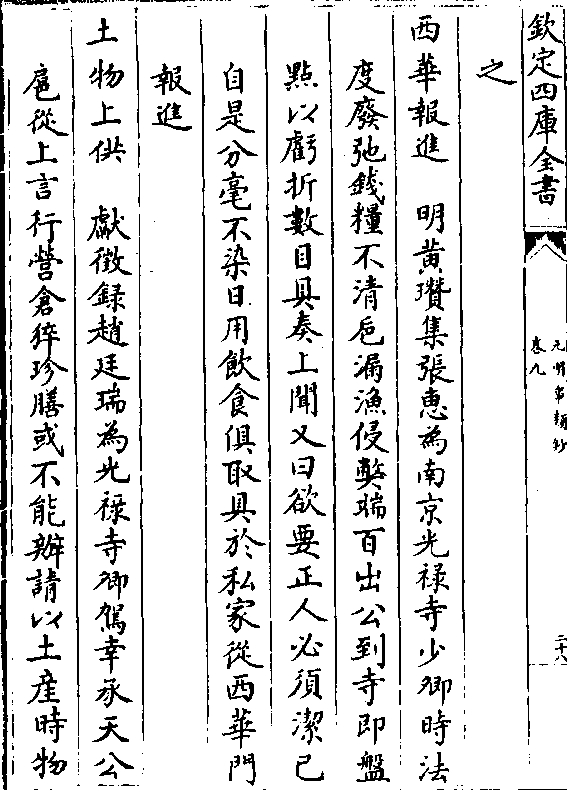 欽定四庫全書
元明事類鈔
卷九
二十八
之
西華報進　明黄瓚集張惠為南京光禄寺少卿時法
度廢弛錢糧不清巵漏漁侵獘端百出公到寺即盤
點以虧折數目具奏上聞又曰欲要正人必須潔己
自是分毫不染日用飲食俱取具於私家從西華門
報進
土物上供　獻徴録趙廷瑞為光禄寺卿駕幸承天公
扈從上言行營倉猝珍膳或不能辦請以土産時物